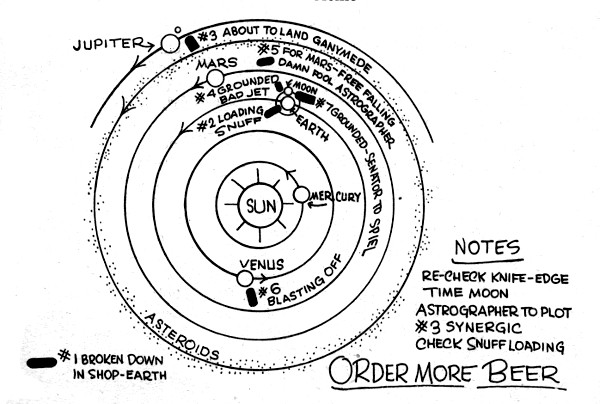 JUPITER
#3 ABOUT TO LAND GANYMEDE
#5 FOR MARS-FREE FALLING
DAMN FOOL ASTROGRAPHER
MARS
#4 GROUNDED
BAD JET
MOON
#7 GROUNDED-SENATOR TO SPIEL
#2 LOADING
SNUFF
EARTH
SUN
MERCURY
VENUS
#6
BLASTING OFF
ASTEROIDS
NOTES
RE-CHECK KNIFE-EDGE
TIME MOON
ASTROGRAPHER TO PLOT
#3 SYNERGIC
CHECK SNUFF LOADING
ORDER MORE BEER
#1 BROKEN DOWN
IN SHOP-EARTH